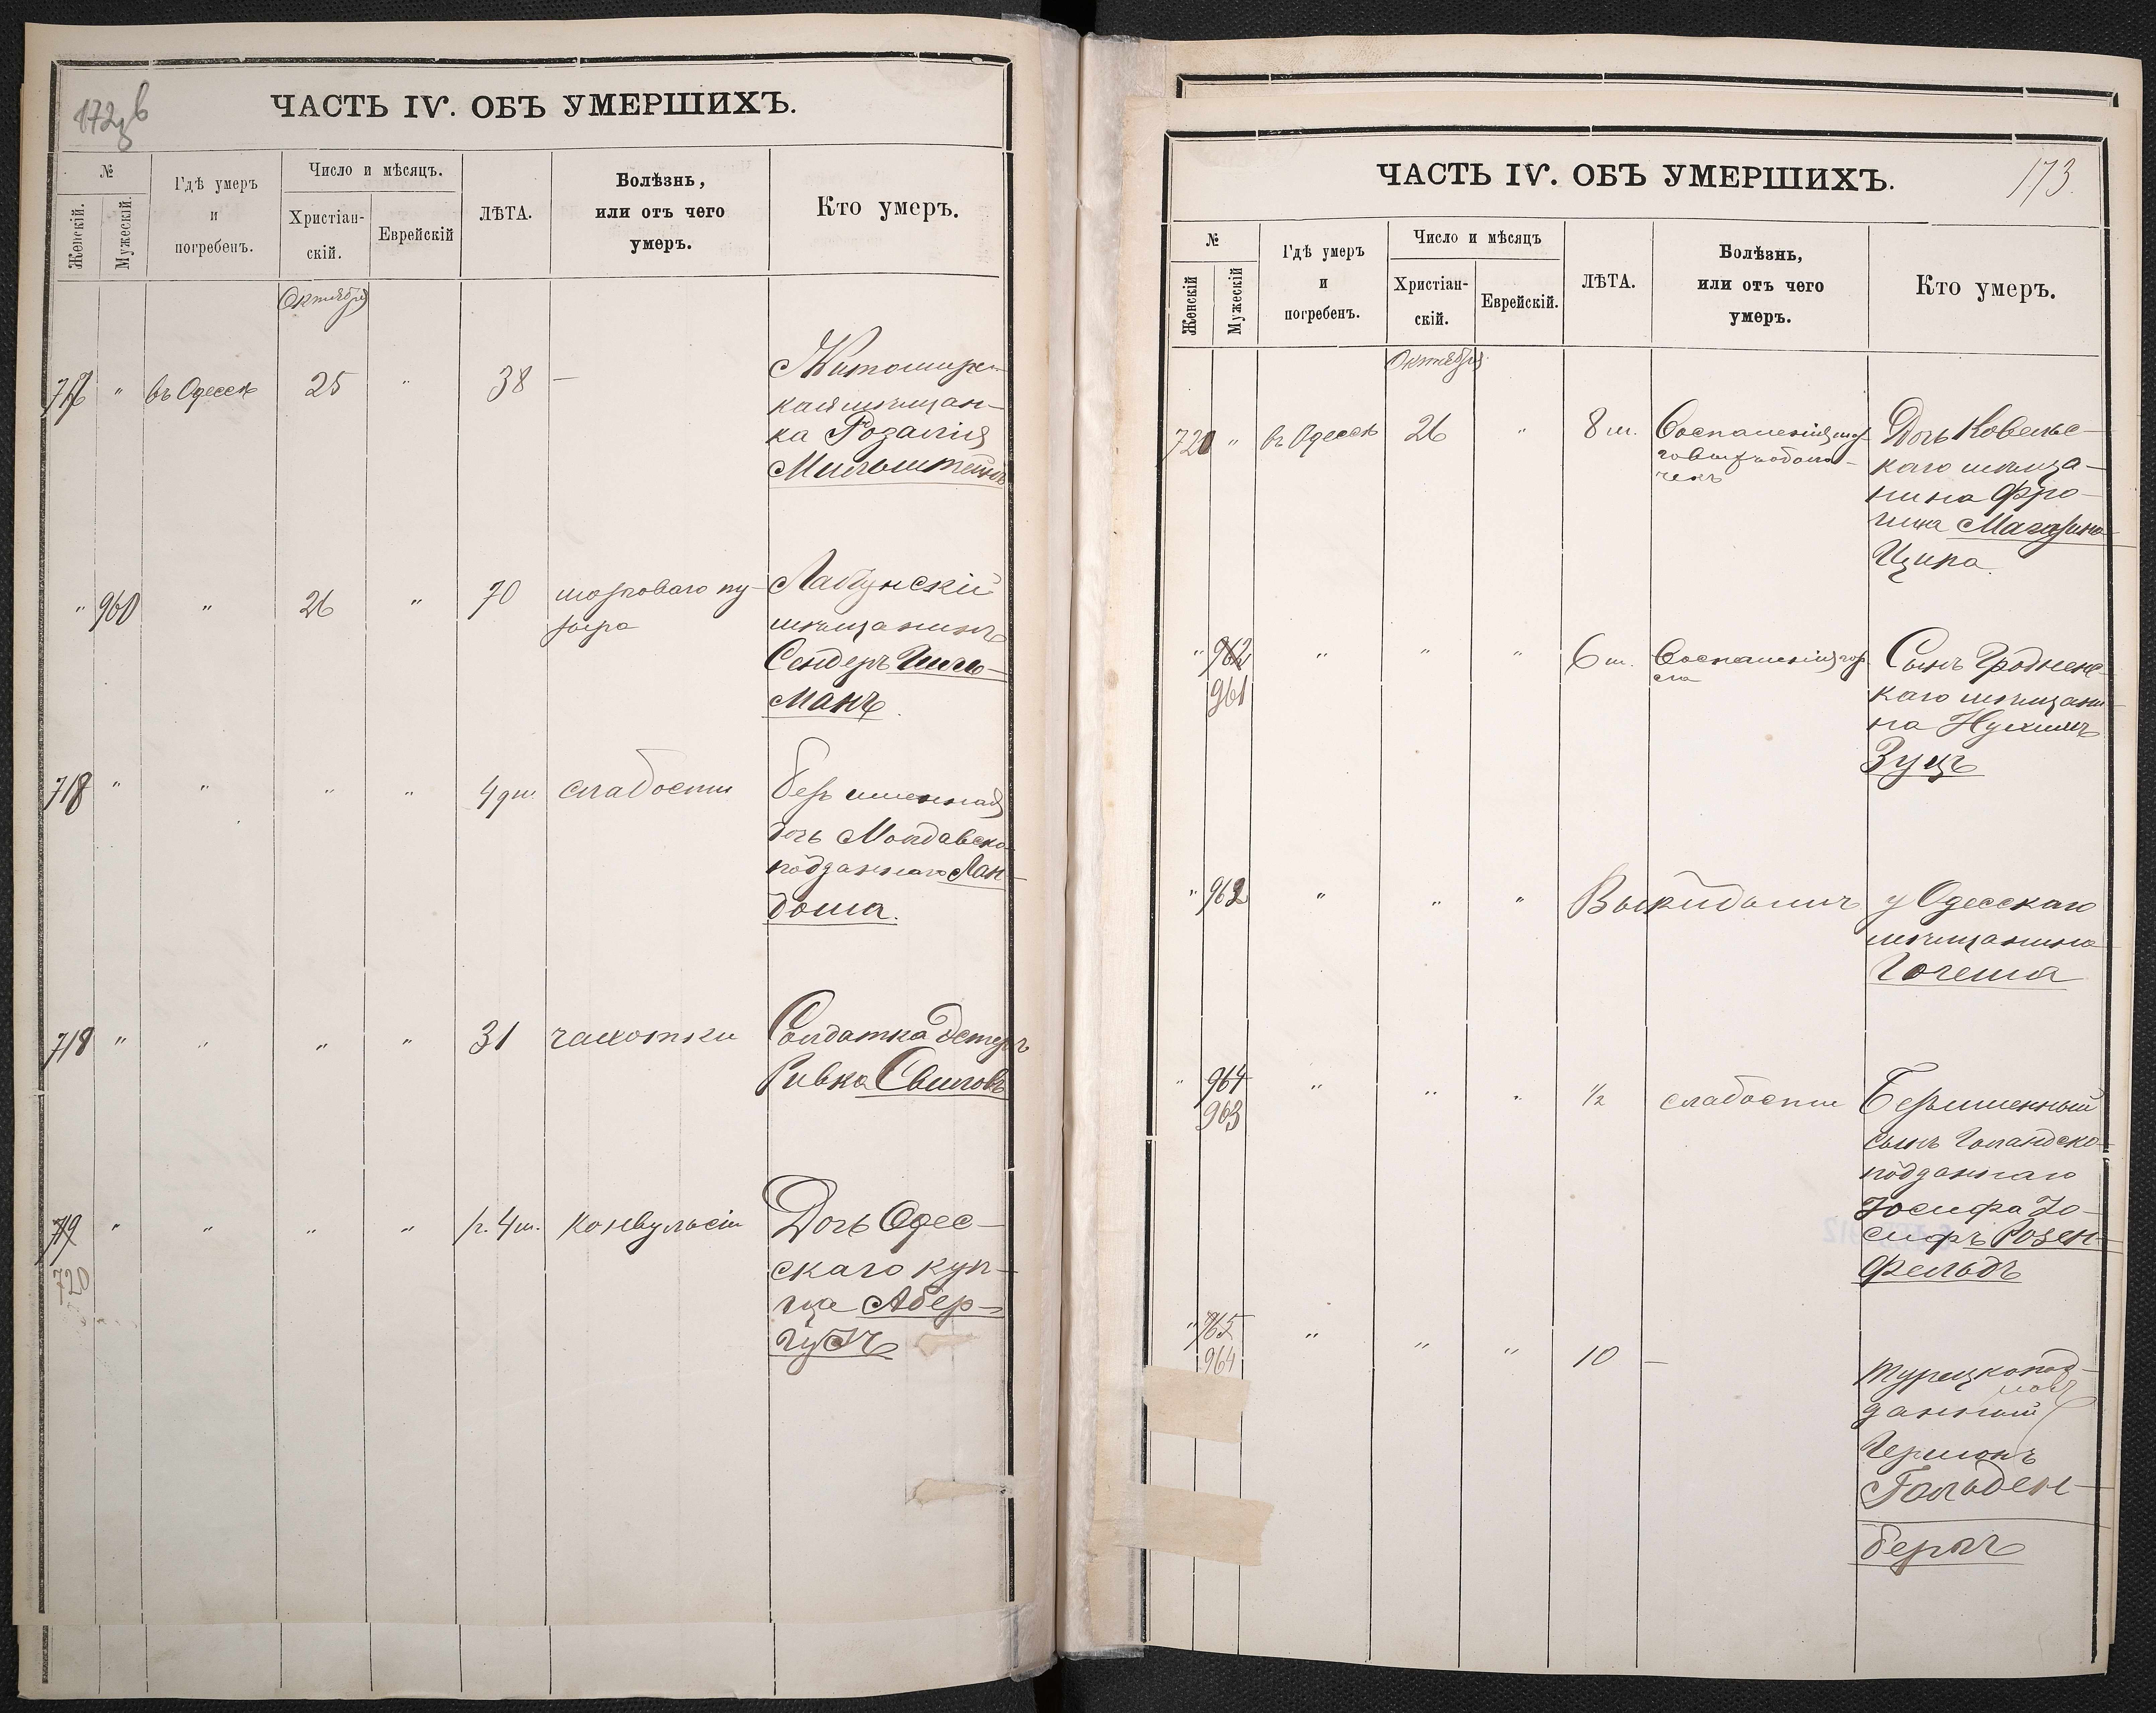 172 об
ЧАСТЬ IV. ОБЪ УМЕРШИХЪ.
№
Женскій.
Мужескій.
Гдѣ умеръ
и
погребенъ.
Число и мѣсяцъ.
Христіан-
скій.
Еврейскій
ЛѢТА.
Болѣзнь,
или отъ чего
умеръ.
Кто умеръ.
Октября
" въ Одессѣ 25 " 38 —
Житомирс-
кая мѣщан-
ка Розалія
Мильштейнъ
" 960 " 26 " 70 мочоваго пу-
зыра
Лабунскій
мѣщанинъ
Сендеръ Шиль-
манъ.
718 " " " " 4 дн. слабости
Безъименная
дочь Молдавско
подданнаго Лан-
доша.
718 " " " " 31 чахотки
Солдатка Эстеръ
Ривка Свиновъ
719 " " " " 1г. 4м. конвульсіи
720
Дочь Одес-
скаго куп-
ца Абер-
гусъ
173.
ЧАСТЬ IV. ОБЪ УМЕРШИХЪ.
№
Женскій
Мужескій
Гдѣ умеръ
и
погребенъ.
Число и мѣсяцъ
Христіан-
скій.
Еврейскій.
ЛѢТА.
Болѣзнь,
или отъ чего
умеръ.
Кто умеръ.
Октября
" въ Одессѣ 26 " 8 м. Воспаленія моз-
говыхъ оболо-
чекъ
Дочь Ковельс-
каго мѣща-
нина Фро-
има Магазина
Ципа.
" 962 " " " 6 м. Воспаленія гор
ла
961
Сынъ Гроднен-
каго мѣщани-
на Нухимъ
Зуцъ
" 962 " " " Выкидышъ
у Одесскаго
мѣщанина
" 964 " " " 1/2 слабости
963
Безъименный
сынъ Голандско-
подданнаго
Іосифа Іо-
сифъ Розен-
фельдъ
" 965 " " " 10 —
964
Турецкопод-
данный
Гермонъ
Гольден-
бергъ